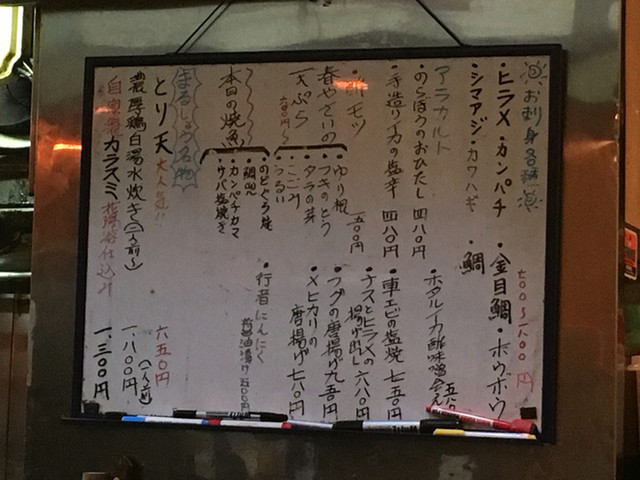 お刺身各種
・ヒラメ・カンパチ
・金目鯛・ホウボウ
・シマアジ・カワハギ
・鯛
アラカルト
・のらぼうのおひたし 四八〇円
・手造りイカの塩辛 四八〇円
モツ
・ホタルイカ酢味噌和え
・車エビの塩焼 七五〇円
・ナスとヒラメの
揚げ出し 六八〇円
・フグの唐揚げ 九五〇円
・メヒカリの
唐揚げ 七八〇円
・行者にんにく
醤油漬け 五〇〇円
春やさいの
天ぷら
・ゆり根
・フキのとう
・タラの芽
・こごみ
・うるい
本日の焼魚
・のどぐろ
・カンパチカマ
・サバ塩焼き
まるしょう名物
とり天 大人気!! 六五〇円
濃厚鶏白湯水炊き(一人前) 一、八〇〇円
(一人前)
自家製カラスミ 一、三〇〇円